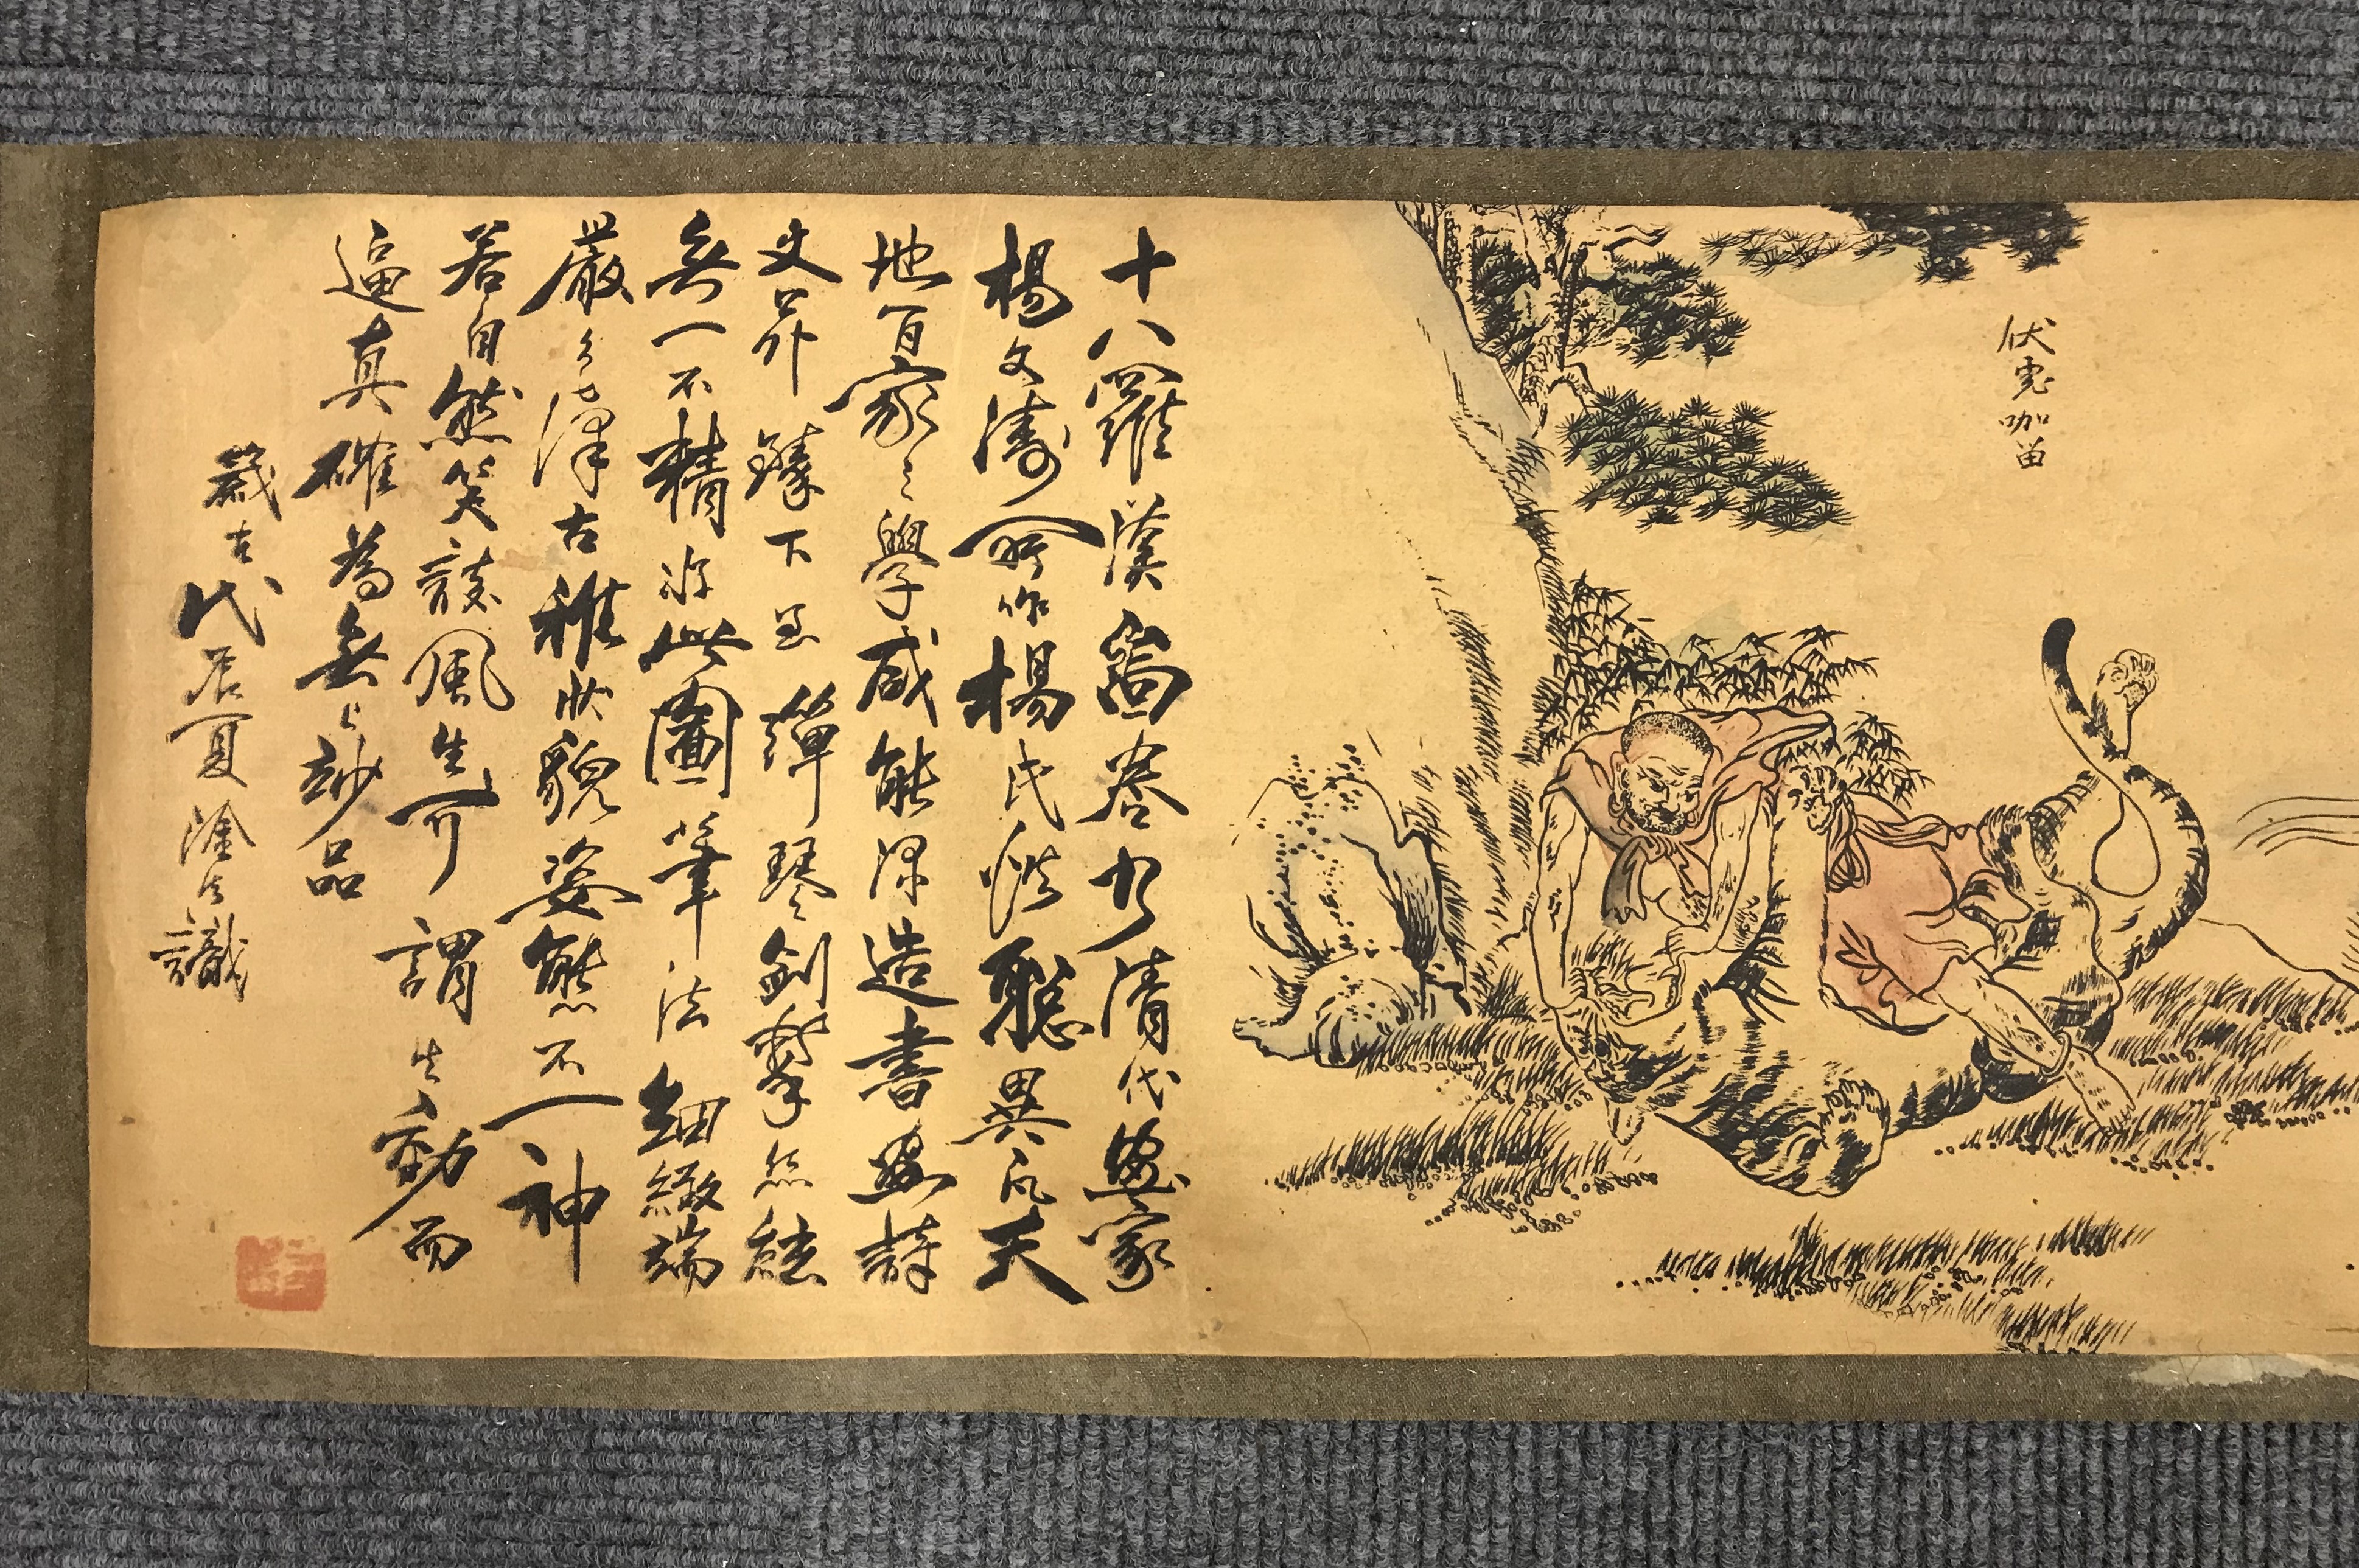 伏虎咖苗
十八羅漢畫卷乃清代畫家
楊文濤所作楊氏聰異凡天
地百家之學咸能深造書畫詩
文昇臻下至彈琴劍擊然能
無一不精此圖筆法細緻端
嚴古稚狀貌姿態不一神
若自然笑談風生可謂生動而
逼真確為無上妙品
箴古代居夏識